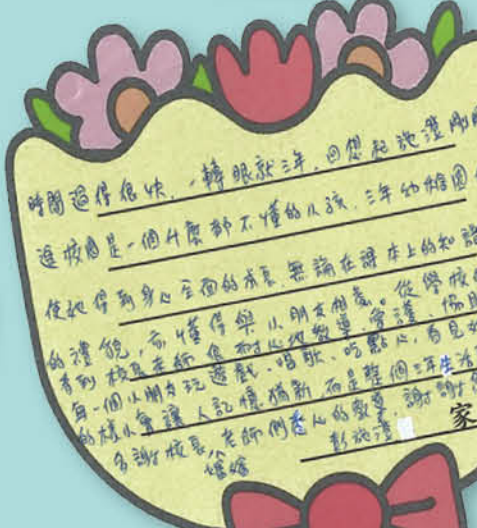 時間過得很快,一轉眼就三年,回想起詠澄剛
進校園是一個什麼都不懂的小孩,三年幼稚園
使她得到身心全面的成長,無論在課本上的知識
的禮貌,亦懂得與小朋友相處。從學校
看到校長老師們耐心地教導、愛護、協助
每一個小朋友玩遊戲、唱歌、吃點心,看見她
的樣小會讓人記憶猶新,而是整個三年生活
多謝校長、老師們悉心的教導,謝謝
嬸嬸
彭詠澄
家